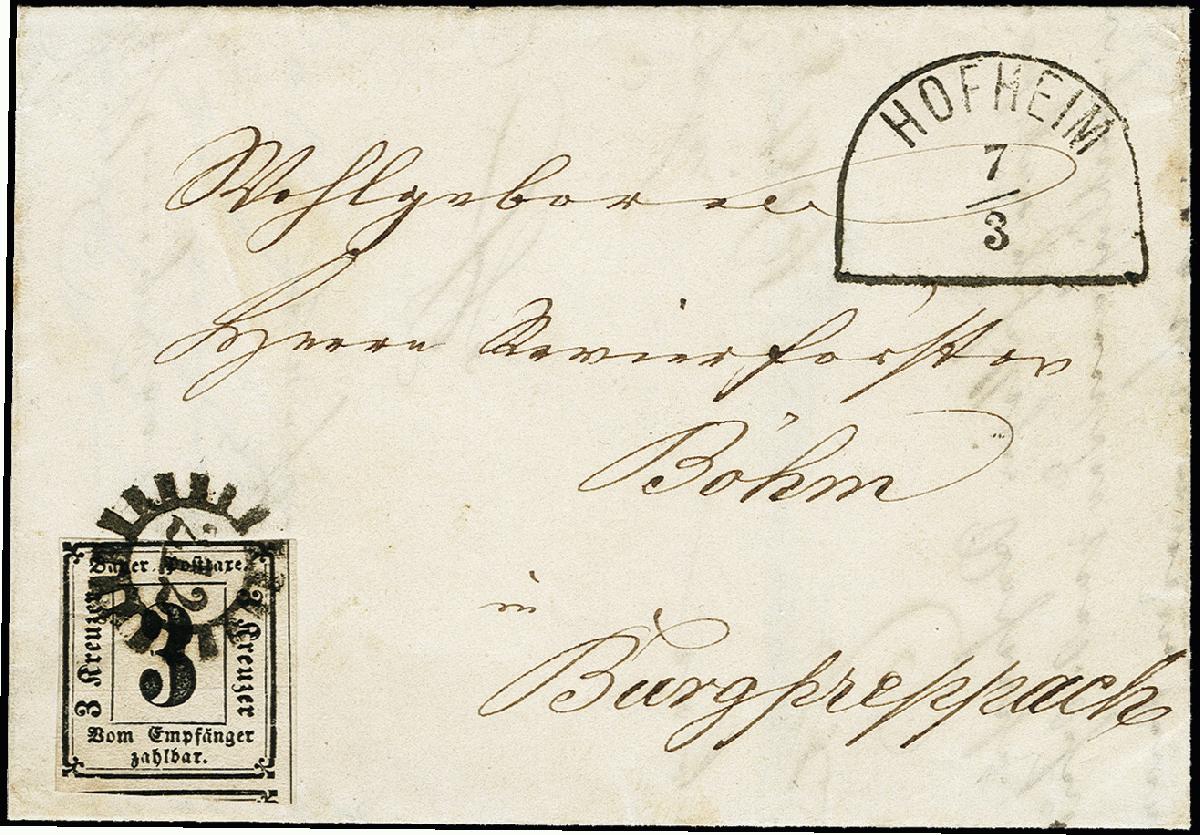 HOFHEIM
7
3
Wohlgeboren
Herrn Revierförster
Böhm
in
Burgpreppach
Bayer. Posttaxe.
3 Kreuzer
3
3 Kreuzer
Vom Empfänger
zahlbar.